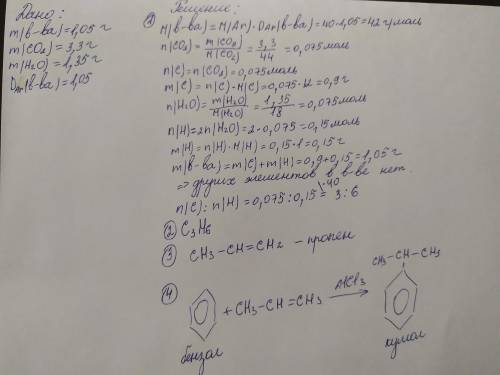 Дано:
m(в-ва)=1,05 г
m(CO₂)=3,3 г
m(H₂O)=1,35 г
D_Ar(в-ва)=1,05
Решение:
① M(в-ва)=M(Ar)·D_Ar(в-ва)=40·1,05=42 г/моль
n(CO₂)=m(CO₂)/M(CO₂)=3,3/44=0,075 моль
n(C)=n(CO₂)=0,075 моль
m(C)=n(C)·M(C)=0,075·12=0,9 г
n(H₂O)=m(H₂O)/M(H₂O)=1,35/18=0,075 моль
n(H)=2n(H₂O)=2·0,075=0,15 моль
m(H)=n(H)·M(H)=0,15·1=0,15 г
m(в-ва)=m(C)+m(H)=0,9+0,15=1,05 г
⇒ других элементов в в-ве нет.
n(C):n(H)=0,075:0,15=3:6
\·40
② C₃H₆
③ CH₃-CH=CH₂ - пропен
CH₃-CH-CH₃
④ + CH₃-CH=CH₃ AlCl₃ →
бензол кумол